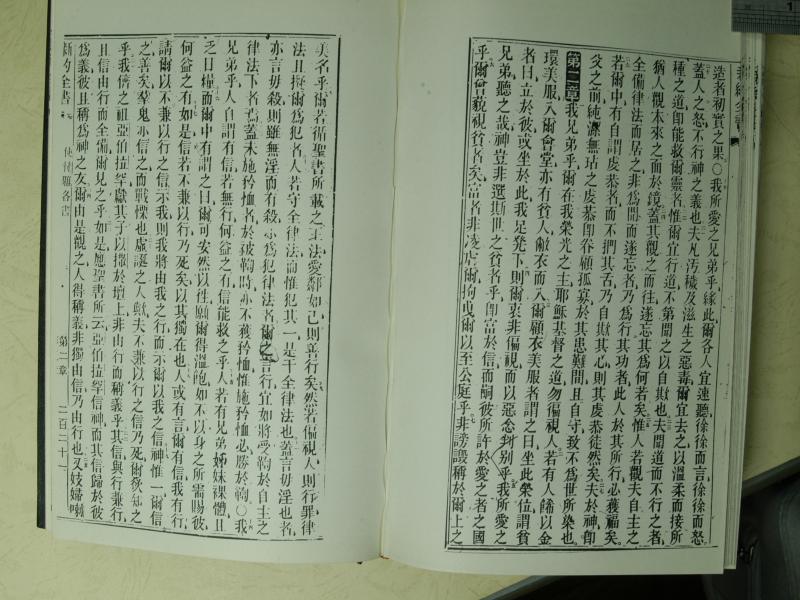 造者初實之果〇我所愛之兄弟乎緣此爾各人宜速聽徐徐而言徐徐而怒
蓋人之怒不行神之義也夫凡汚穢及滋生之惡毒爾宜去之以溫柔而接所
種之道卽能救爾靈者惟爾宜行道不第聞之以自欺也夫聞道而不行之者
猶人觀本來之面於鏡蓋其觀之而往遂忘其爲何若矣惟人若觀夫自主之
全備律法而居之非爲聞而遂忘者乃爲行其功者此人於其所行必獲福矣
若爾中有自謂虔恭者而不捫其舌乃自欺其心則其虔恭徒然矣夫於神卽
父之前純潔無玷之虔恭卽眷顧孤寡於其患難間且自守致不爲世所染也
第二章我兄弟乎爾在我榮光之主耶穌基督之道勿徧視人若有人飾以金
環美服入爾會堂亦有貧人敝衣而入爾顧衣美服者謂之曰坐此榮位謂貧
者曰立於彼或坐於此我足凳下則爾衷非徧視而以惡念判别乎我所愛之
兄弟聽之哉神豈非選斯世之貧者乎卽富於信而嗣彼所許於愛之者之國
乎爾曾藐視貧者矣富者非凌虐爾拘曳爾以至公庭乎非謗讟稱於爾上之
美名乎爾若循聖書所載之王法愛鄰如己則善行矣然若徧視人則行罪律
法且擬爾爲犯者人若守全律法而惟犯其一是干全律法也蓋言毋淫也者
亦言毋殺則雖無淫而有殺亦爲犯律法者爾之言行宜如將受鞫於自主之
律法下者焉蓋未施矜恤者於被鞫時亦不獲矜恤惟施矜恤必勝於鞫〇我
兄弟乎人自謂有信若無行何益之有信能救之乎人若有兄弟姊妹裸體且
乏日糧而爾中有謂之曰爾可安然以往願爾得溫飽如不以身之所需賜彼
何益之有如是信若不兼以行乃死矣以其獨在也人或有言爾有信我有行
請爾以不兼以行之信示我則我將由我之行而示爾以我之信神惟一爾信
之善矣羣鬼亦信之而戰慄也虛誕之人歟夫不兼以行之信乃死爾欲知之
乎我儕之祖亞伯拉罕獻其子以撒於壇上非由行而稱義乎其信與行兼行
且信由行而全備爾見之乎如是應聖書所云亞伯拉罕信神而其信歸於彼
爲義彼且稱爲神之友爾由是觀之人得稱義非獨由信乃由行也又妓婦喇
新約全書 使徒雅各書 第二章 二百二十一